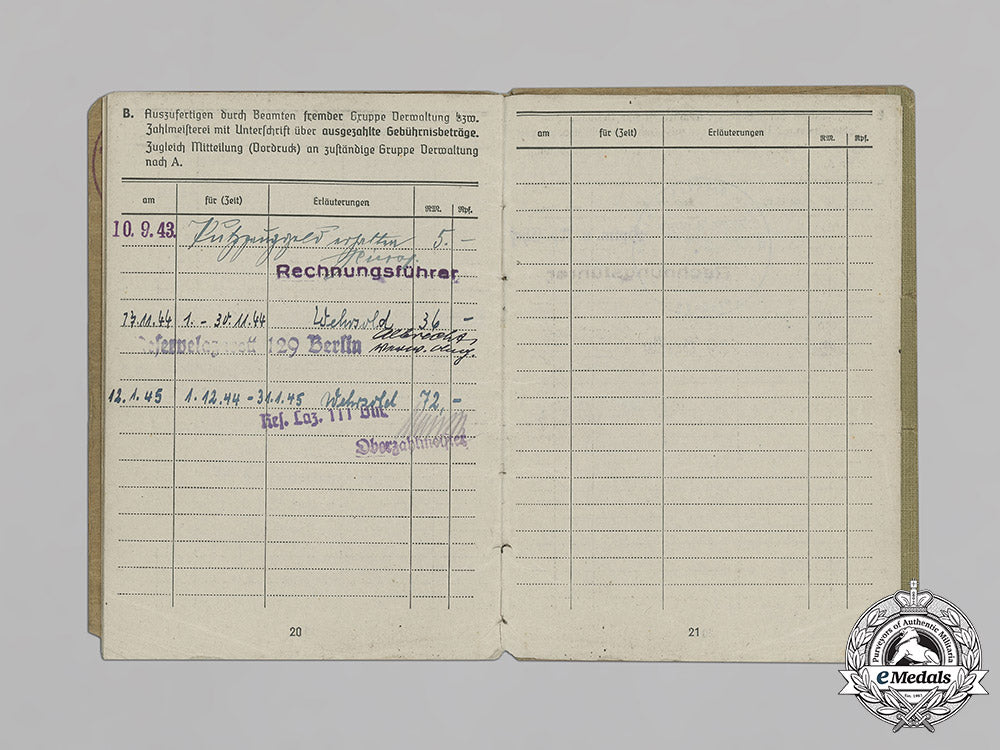 B. Auszufertigen durch Beamten fremder Gruppe Verwaltung bzw.
Zahlmeisterei mit Unterschrift über ausgezahlte Gebührnisbeträge.
Zugleich Mitteilung (Vordruck) an zuständige Gruppe Verwaltung
nach A.
am für (Zeit) Erläuterungen RM. Rpf.
10. 9. 43. Putzzeuggeld erhalten 5. –
Rechnungsführer
17.11.44 1. – 30.11.44 Wehrsold 36 –
Albrecht
Reservelazarett 129 Berlin
12.1.45 1.12.44 – 31.1.45 Wehrsold 72,–
Res. Laz. 111 Bln.
Oberzahlmeister
20
am für (Zeit) Erläuterungen RM. Rpf.
21
Purveyors of Authentic Militaria
eMedals